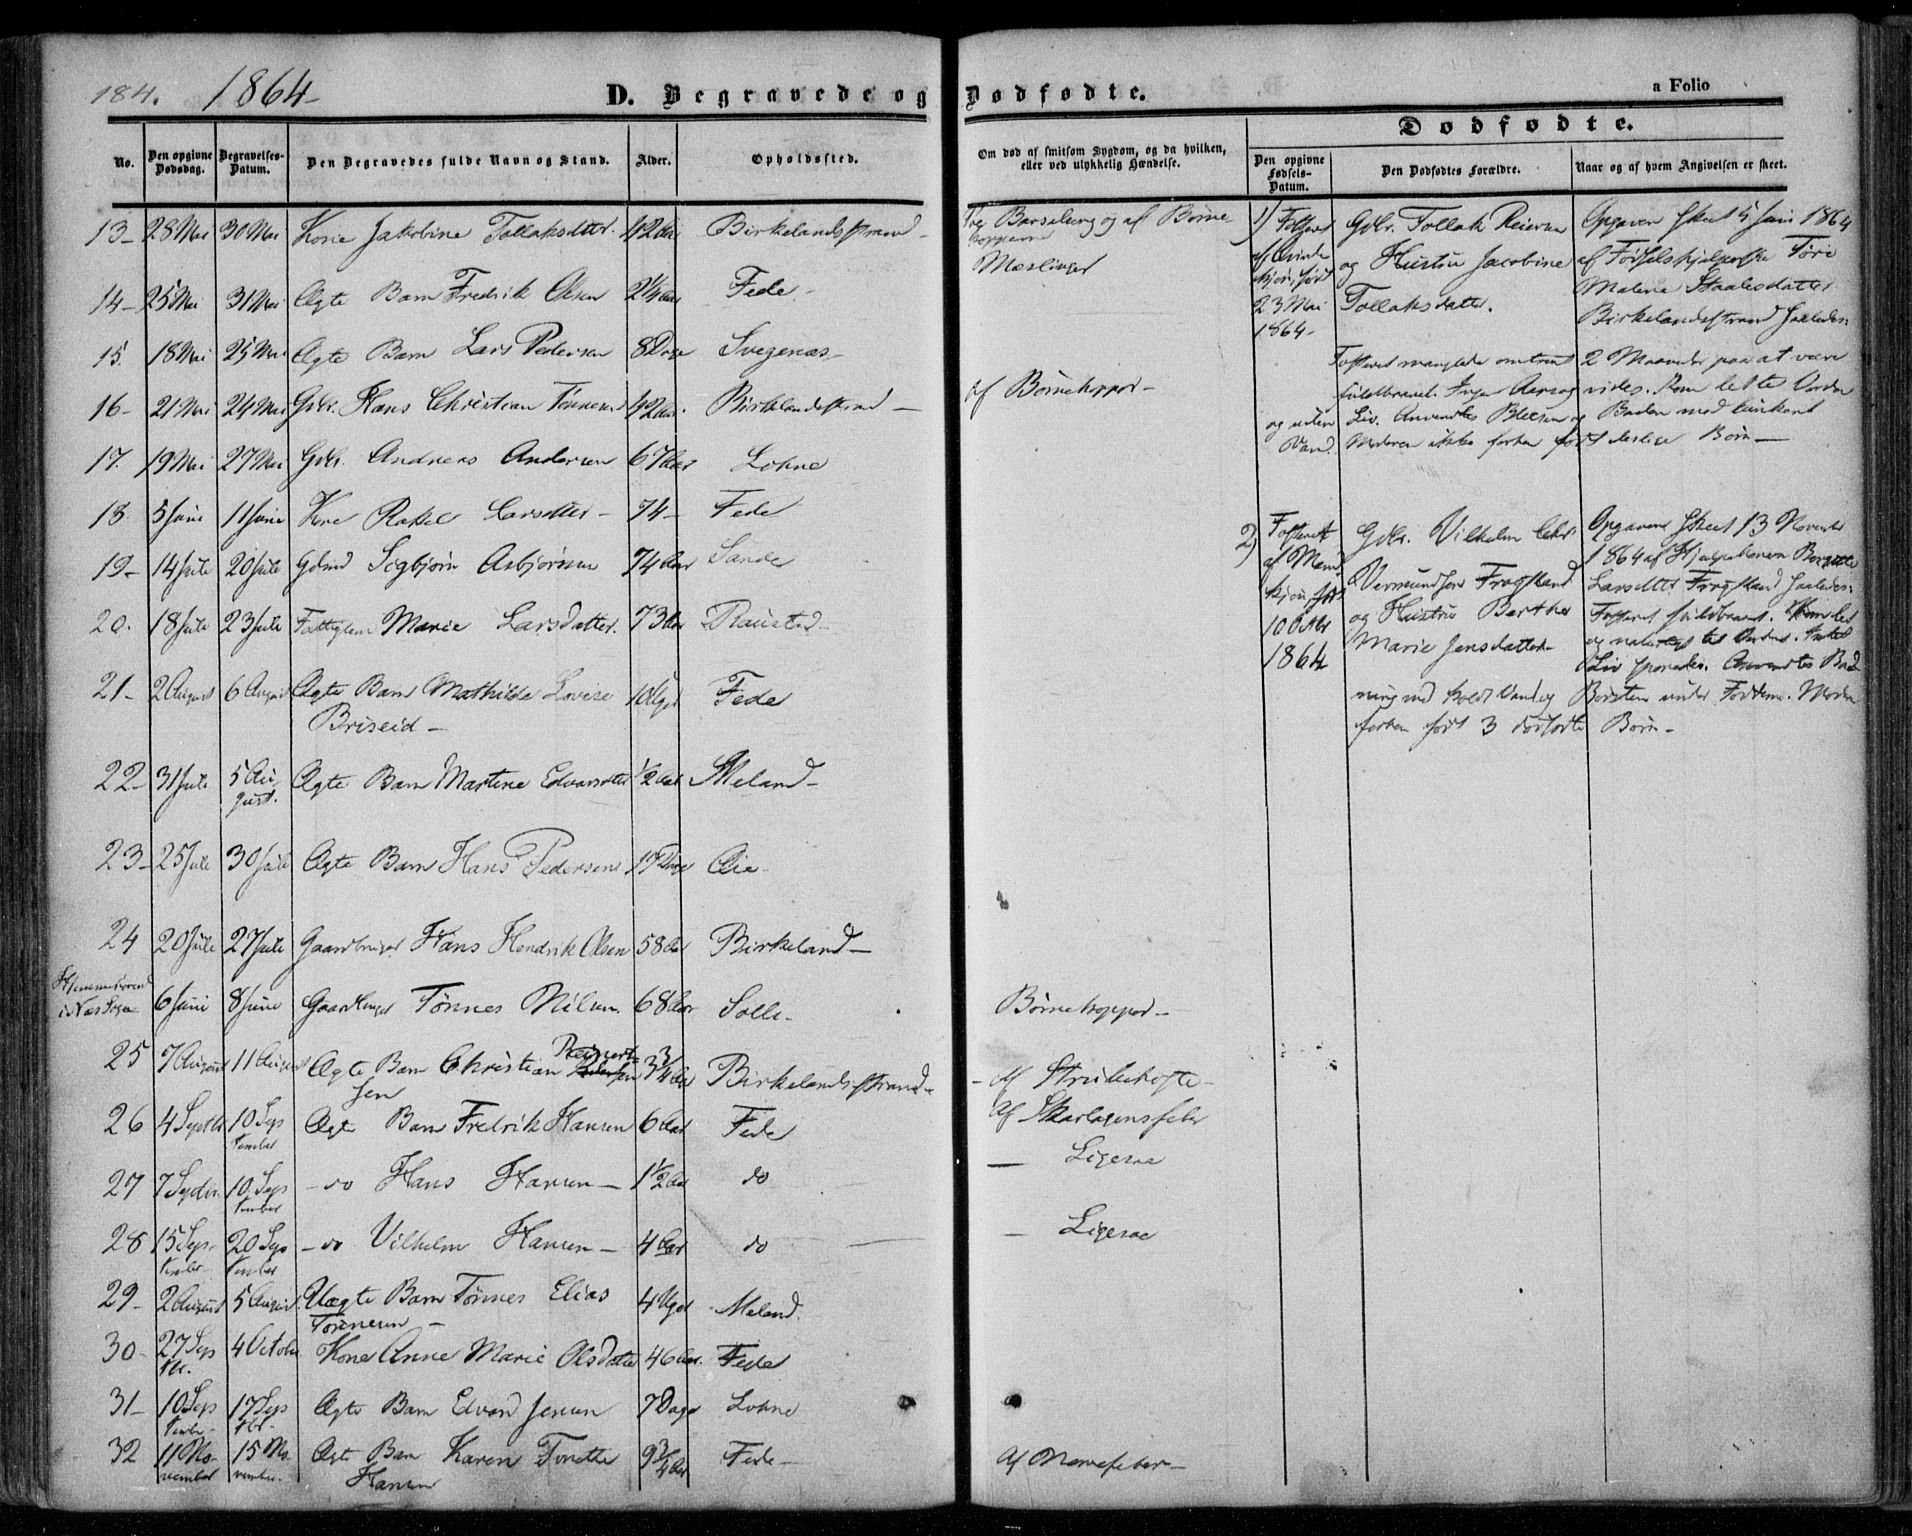 184. 1864-
D. Begravede og Dødfødte.
a Folio
Dødfødte.
No. Den opgivne Dødsdag. Begravelses-Datum. Den Begravedes fulde Navn og Stand. Alder. Opholdssted. Om død af smitsom Sygdom, og da hvilken, eller ved ulykkelig Hændelse. Den opgivne Fødsels-Datum. Den Dødfødtes Forældre. Naar og af hvem Angivelsen er skeet.
13- 28 Mai 30 Mai Kone Jakobine Tollaksdatter. 42 Aar Birkelandsstrand- Barselseng og af Børnekopperne
14- 25 Mai 31 Mai Ægte Barn Fredrik Olsen 2 1/4 Aar Fede- Mæslinger
15. 18 Mai 25 Mai Ægte Barn Lars Pedersen 8 Dage Svegenæs-
16- 21 Mai 24 Mai Gdbr. Hans Christian Tønnesen 42 Aar. Birkelandsstrand- af Børnekopper-
17. 19 Mai 27 Mai Gdbr. Andreas Andersen 67 Aar Lohne
18. 5 Juni 11 Juni Kone Rakel Larsdatter- 74- Fede
19- 14 Jule 20 Jule Gdmd Sigbjørn Asbjørnsen 74 Aar Sande
20. 18 Jule 23 Jule Fattiglem Marie Larsdatter. 73 Aar Raustad-
21- 2 August 6 August Ægte Barn Mathilde Lovise 10 Uger Fede
Briseid-
22- 31 Jule 5 August. Ægte Barn Martine Edvarsdatter 1/2 Aar Meland-
23- 25 Jule 30 Jule Ægte Barn Hans Pedersen 17 Dage Øie-
24 20 Jule 27 Jule Gaardbruger Hans Hendrik Olsen 58 Aar Birkeland-
Hjemmehørende
i Næs Sogn 6 Juni 8 Juni Gaardbruger Tønnes Nilsen. 68 Aar Solli- Børnekopper-
25 7 August 11 August Ægte Barn Christian Reinert- 3 3/4 Aar Birkelandsstrand- - af Strubehoste-
sen
26 4 Septbr 10 September Ægte Barn Fredrik Hansen 6 Aar Fede af Skarlagensfeber
27 7 Septbr. 10 September - do Hans Hansen- 1 1/2 Aar do - Ligesaa
28 15 September 20 September - do Vilhelm Hansen- 4 Aar do - Ligesaa
29- 2 August 5 August Uægte Barn Tønnes Elias 4 Uger Meland.
Tønnesen-
30- 27 Septbr. 4 October Kone Anne Marie Olsdatter 46 Aar. Fede
31- 10 September- 17 Septbr- Ægte Barn Edvard Jensen 7 Dage Lohne
32 11 November 15 November. Ægte Barn Karen Tonette 9 3/4 Aar Fede- af Nervefeber-
Hansen
1) Fosteret af Kvindekjøn, født 23 Mai 1864-
Gdbr. Tollak Reiersen og Hustru Jacobine Tollaksdatter.
Opgaven skeet 4 Juni 1864
af Fødselshjelperske Tori
Malene Staalesdatter
Birkelandsstrand saaledes:
Fosteret manglede omtrent 2 Maaneder paa at være
fuldbaaret. Ingen Aarsag vides. Kom lette Verden
og uden Liv. Anvendtes Blæsen og Baden med lunkent
Vand. Moderen ikke forhen født deslige Børn-
2) Fosteret af Mandkjøn, født 10 Octbr 1864
Gdbr. Vilhelm Chr. Vermundsen Frøystand og Hustru Berthe Marie Jensdatter-
Opgaven skeet 13 November
1864 af Hjelpekonen Bergitte
Larsdtter Frøystand saaledes:
Fosteret fuldbaaret. Kom let
og naturligt til Verden. Intet
Liv sporedes. Anvendtes Badning med koldt Vand og Børsten under Fødderne. Moderen
forhen født 3 dødfødte Børn-